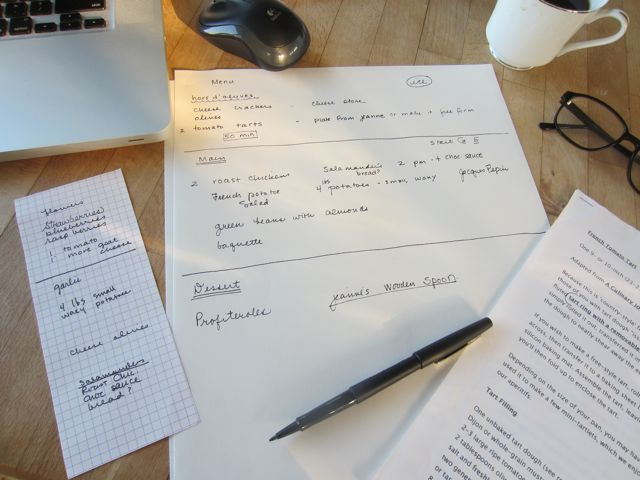 Logitech
Menu
ice
hors d'œuvres
cheese crackers - cheese store
olives
2 tomato tarts - plate from Jeanne or make it free form
50 min
Start @ 5
Main
2 roast chickens Salamander's 2 pm + choc sauce
bread?
French potato salad 4 lbs potatoes - small, waxy Jacques Pepin
green beans with almonds
baguette
Dessert
Profiteroles Jeanne's Wooden Spoon
flowers
strawberries
blueberries
raspberries
1 tomato
1 more goat cheese
garlic
4 lbs small
waxy potatoes
cheese olives
Salamanders
Roast Chic.
choc sauce
bread?
French Tomato Tart
One 9- or 10-inch
Adapted from A Culinary
Because this is "country-style
those of you with tart dough
fluted tart ring with a removable
simply rolled it out, transferred
the dough to neatly shear away the
If you wish to make a free-style tart, roll
across, then transfer it to a baking sheet
silicon baking mat. Assemble the tart, leaving
you'll then fold up to enclose the tart.
Depending on the size of your pan, you may have
used it to make a few mini-tartlets, which we enjoyed
our aperitifs.
Tart Filling
One unbaked tart dough (see
Dijon or whole-grain mustard
2-3 large ripe tomatoes
2 tablespoons olive
salt and fresh
two gene
or tar